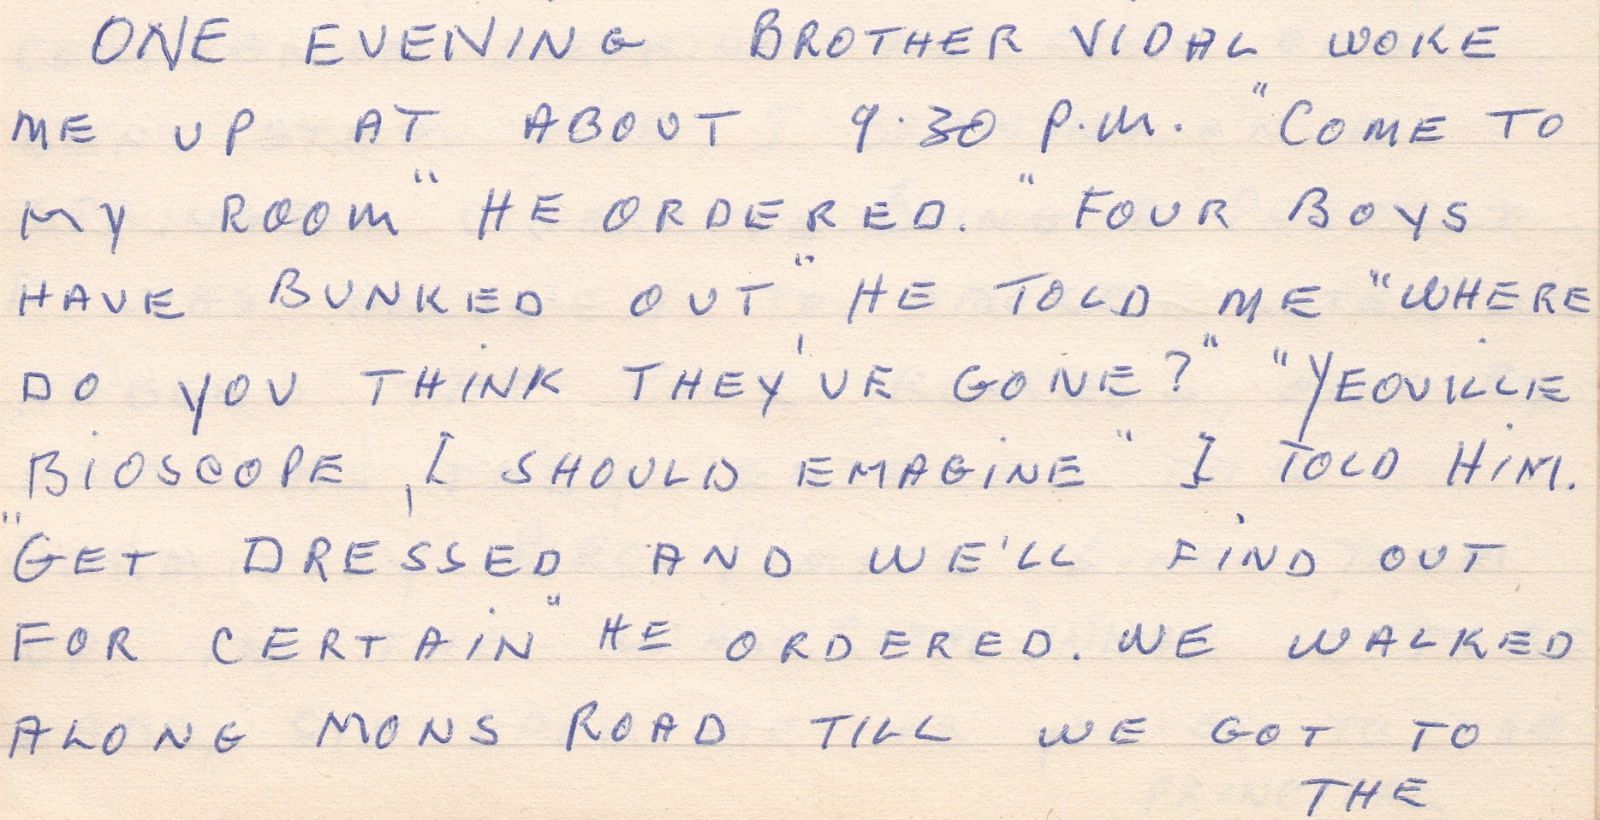 ONE EVENING BROTHER VIDAL WOKE
ME UP AT ABOUT 9.30 P.M. "COME TO
MY ROOM" HE ORDERED. "FOUR BOYS
HAVE BUNKED OUT" HE TOLD ME "WHERE
DO YOU THINK THEY'VE GONE?" "YEOVILLE
BIOSCOPE, I SHOULD EMAGINE" I TOLD HIM.
"GET DRESSED AND WE'LL FIND OUT
FOR CERTAIN" HE ORDERED. WE WALKED
ALONG MONS ROAD TILL WE GOT TO
THE